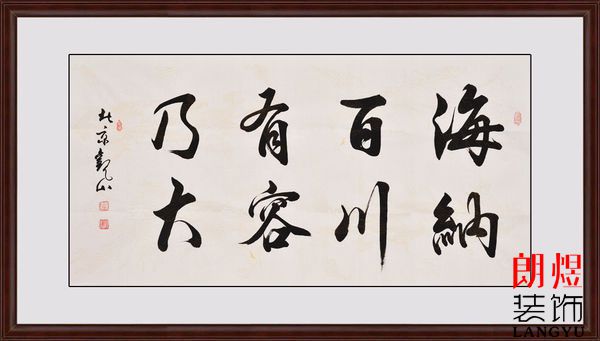 海納
百川
有容
乃大
北京觀山
朗煜
装饰
LANGYU